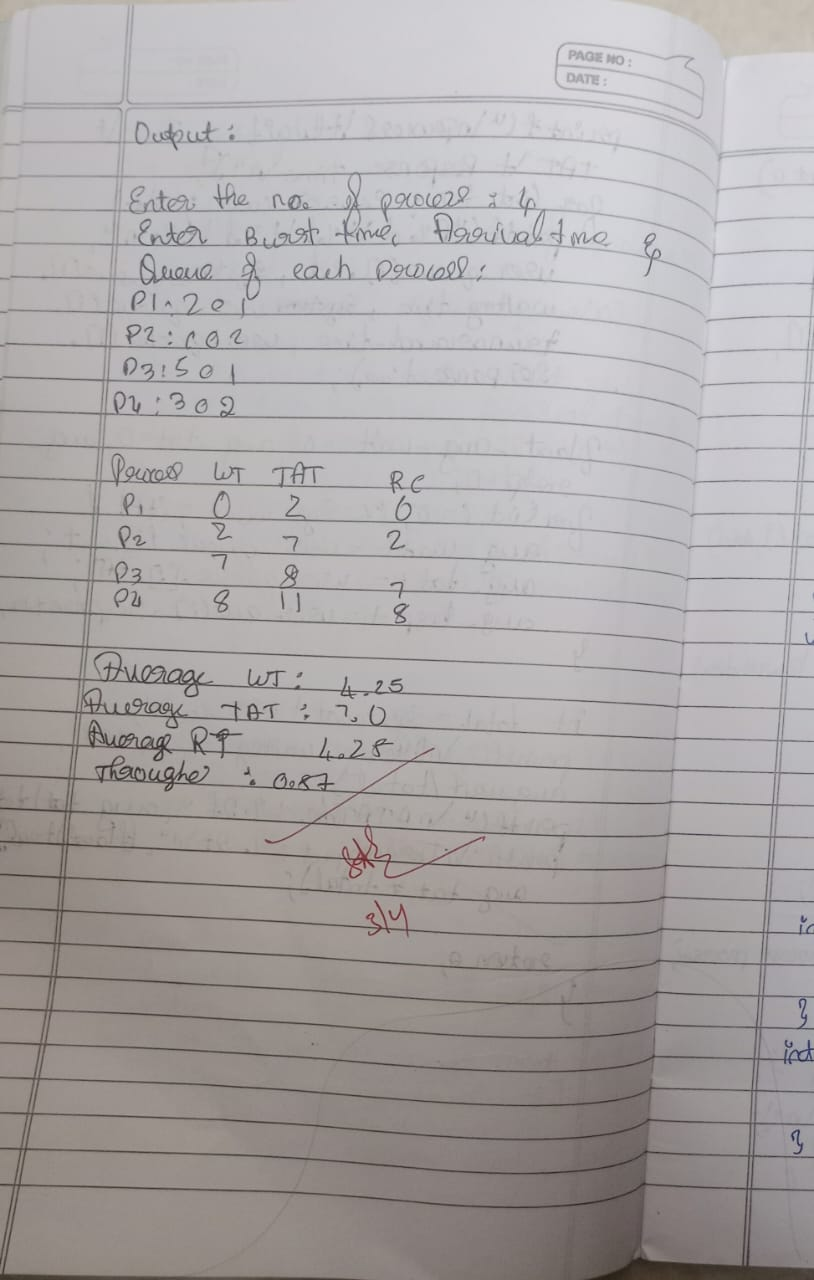 PAGE NO:
DATE:
Output:
Enter the no. of process : 4
Enter Burst time, Arrival time &
Queue of each process:
P1: 2 0 1
P2: 1 0 2
P3: 5 0 1
P4: 3 0 2
Process WT TAT RC
P1 0 2 0
P2 2 7 2
P3 7 8 7
P4 8 11 8
Average WT: 4.25
Average TAT: 7.0
Average RT 4.25
Througher : 0.87
3/4
int
}